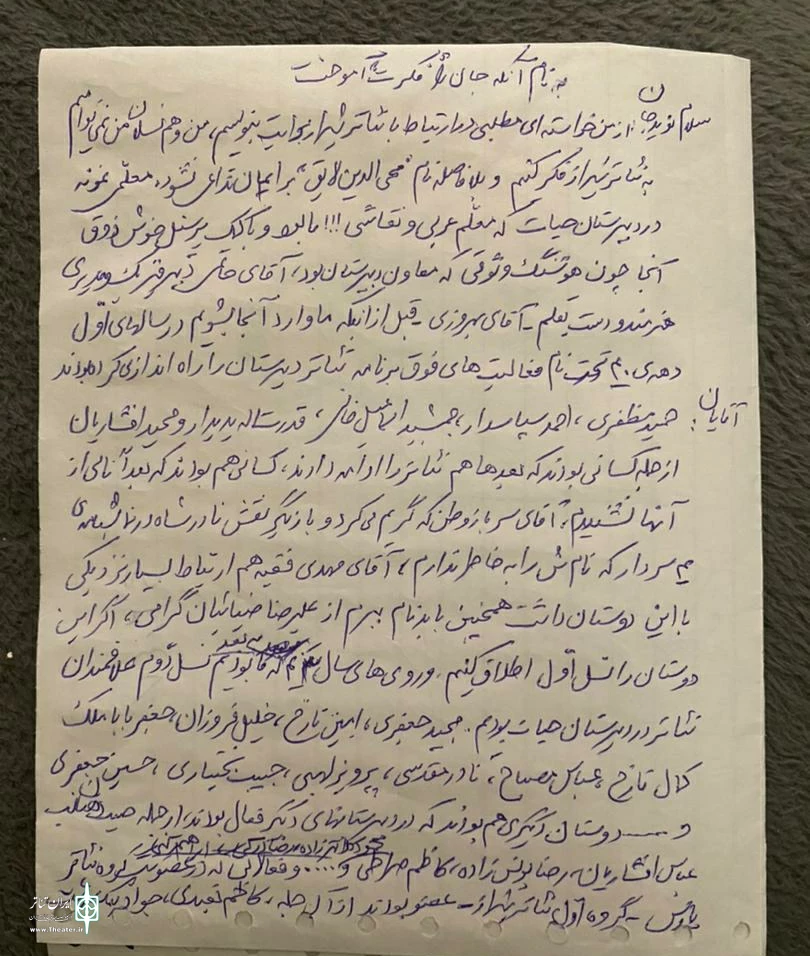 به نام آنکه جان را فکرت آموخت
سلام نوید جان: از من خواسته‌ای مطلبی در ارتباط با تئاتر شیراز برایت بنویسم، من و هم نسلان من نمی‌توانیم
به تئاتر شیراز فکر کنیم و بلافاصله نام "محی الدین لایق" برایمان تداعی نشود. معلمی نمونه
در دبیرستان حیات که معلم عربی و نقاشی !!! ما بود و با کمک پرسنل خوش ذوق
آنجا چون هوشنگ وثوقی که معاون دبیرستان بود، آقای حاتمی دبیر فیزیک و مدیری
هنرمند و دست بقلم - آقای بهروزی - قبل از آنکه ما وارد آنجا بشویم در سالهای اول
دهه‌ی ۴۰ تحت نام فعالیت های فوق برنامه تئاتر دبیرستان را راه اندازی کرده بودند
آقایان: حمید مظفری، احمد سپاسدار، جمشید اسماعیل خانی، قدرت اله پدیدار و مجید افشاریان
از جمله کسانی بودند که بعدها هم تئاتر را ادامه دادند، کسانی هم بودند که بعدها نامی از
آنها نشنیدم. آقای سرباز وطن که گریم می کرد و بازیگر نقش نادرشاه در نمایشنامه‌ی
سردار که نامش را به خاطر ندارم، آقای مهدی فقیه هم ارتباط بسیار نزدیکی
با این دوستان داشت همچنین باید نام ببرم از علیرضا ضیائیان گرامی، اگر این
دوستان را نسل اول اطلاق کنیم. ورودی های سال به بعد که ما بودیم نسل دوم علاقمندان
تئاتر در دبیرستان حیات بودیم. مجید جعفری، امین تارخ، خلیل فروزان، جعفر بابا ملک
کمال تارخ، عباس مصباح، نادر مقدسی، پرویز لهبی، حبیب بختیاری، حسین جعفری
و دوستان دیگری هم بودند که در دبیرستانهای دیگر فعال بودند، از جمله
عباس افشاریان، رضا پرنس زاده، کاظم صراطی و .... و فعالانی که در عضویت گروه تئاتر
پارس - گروه اول تئاتر شیراز - عضو بودند از آن جمله، کاظم تعبدی، جواد
ایران تئاتر
www.Theater.ir